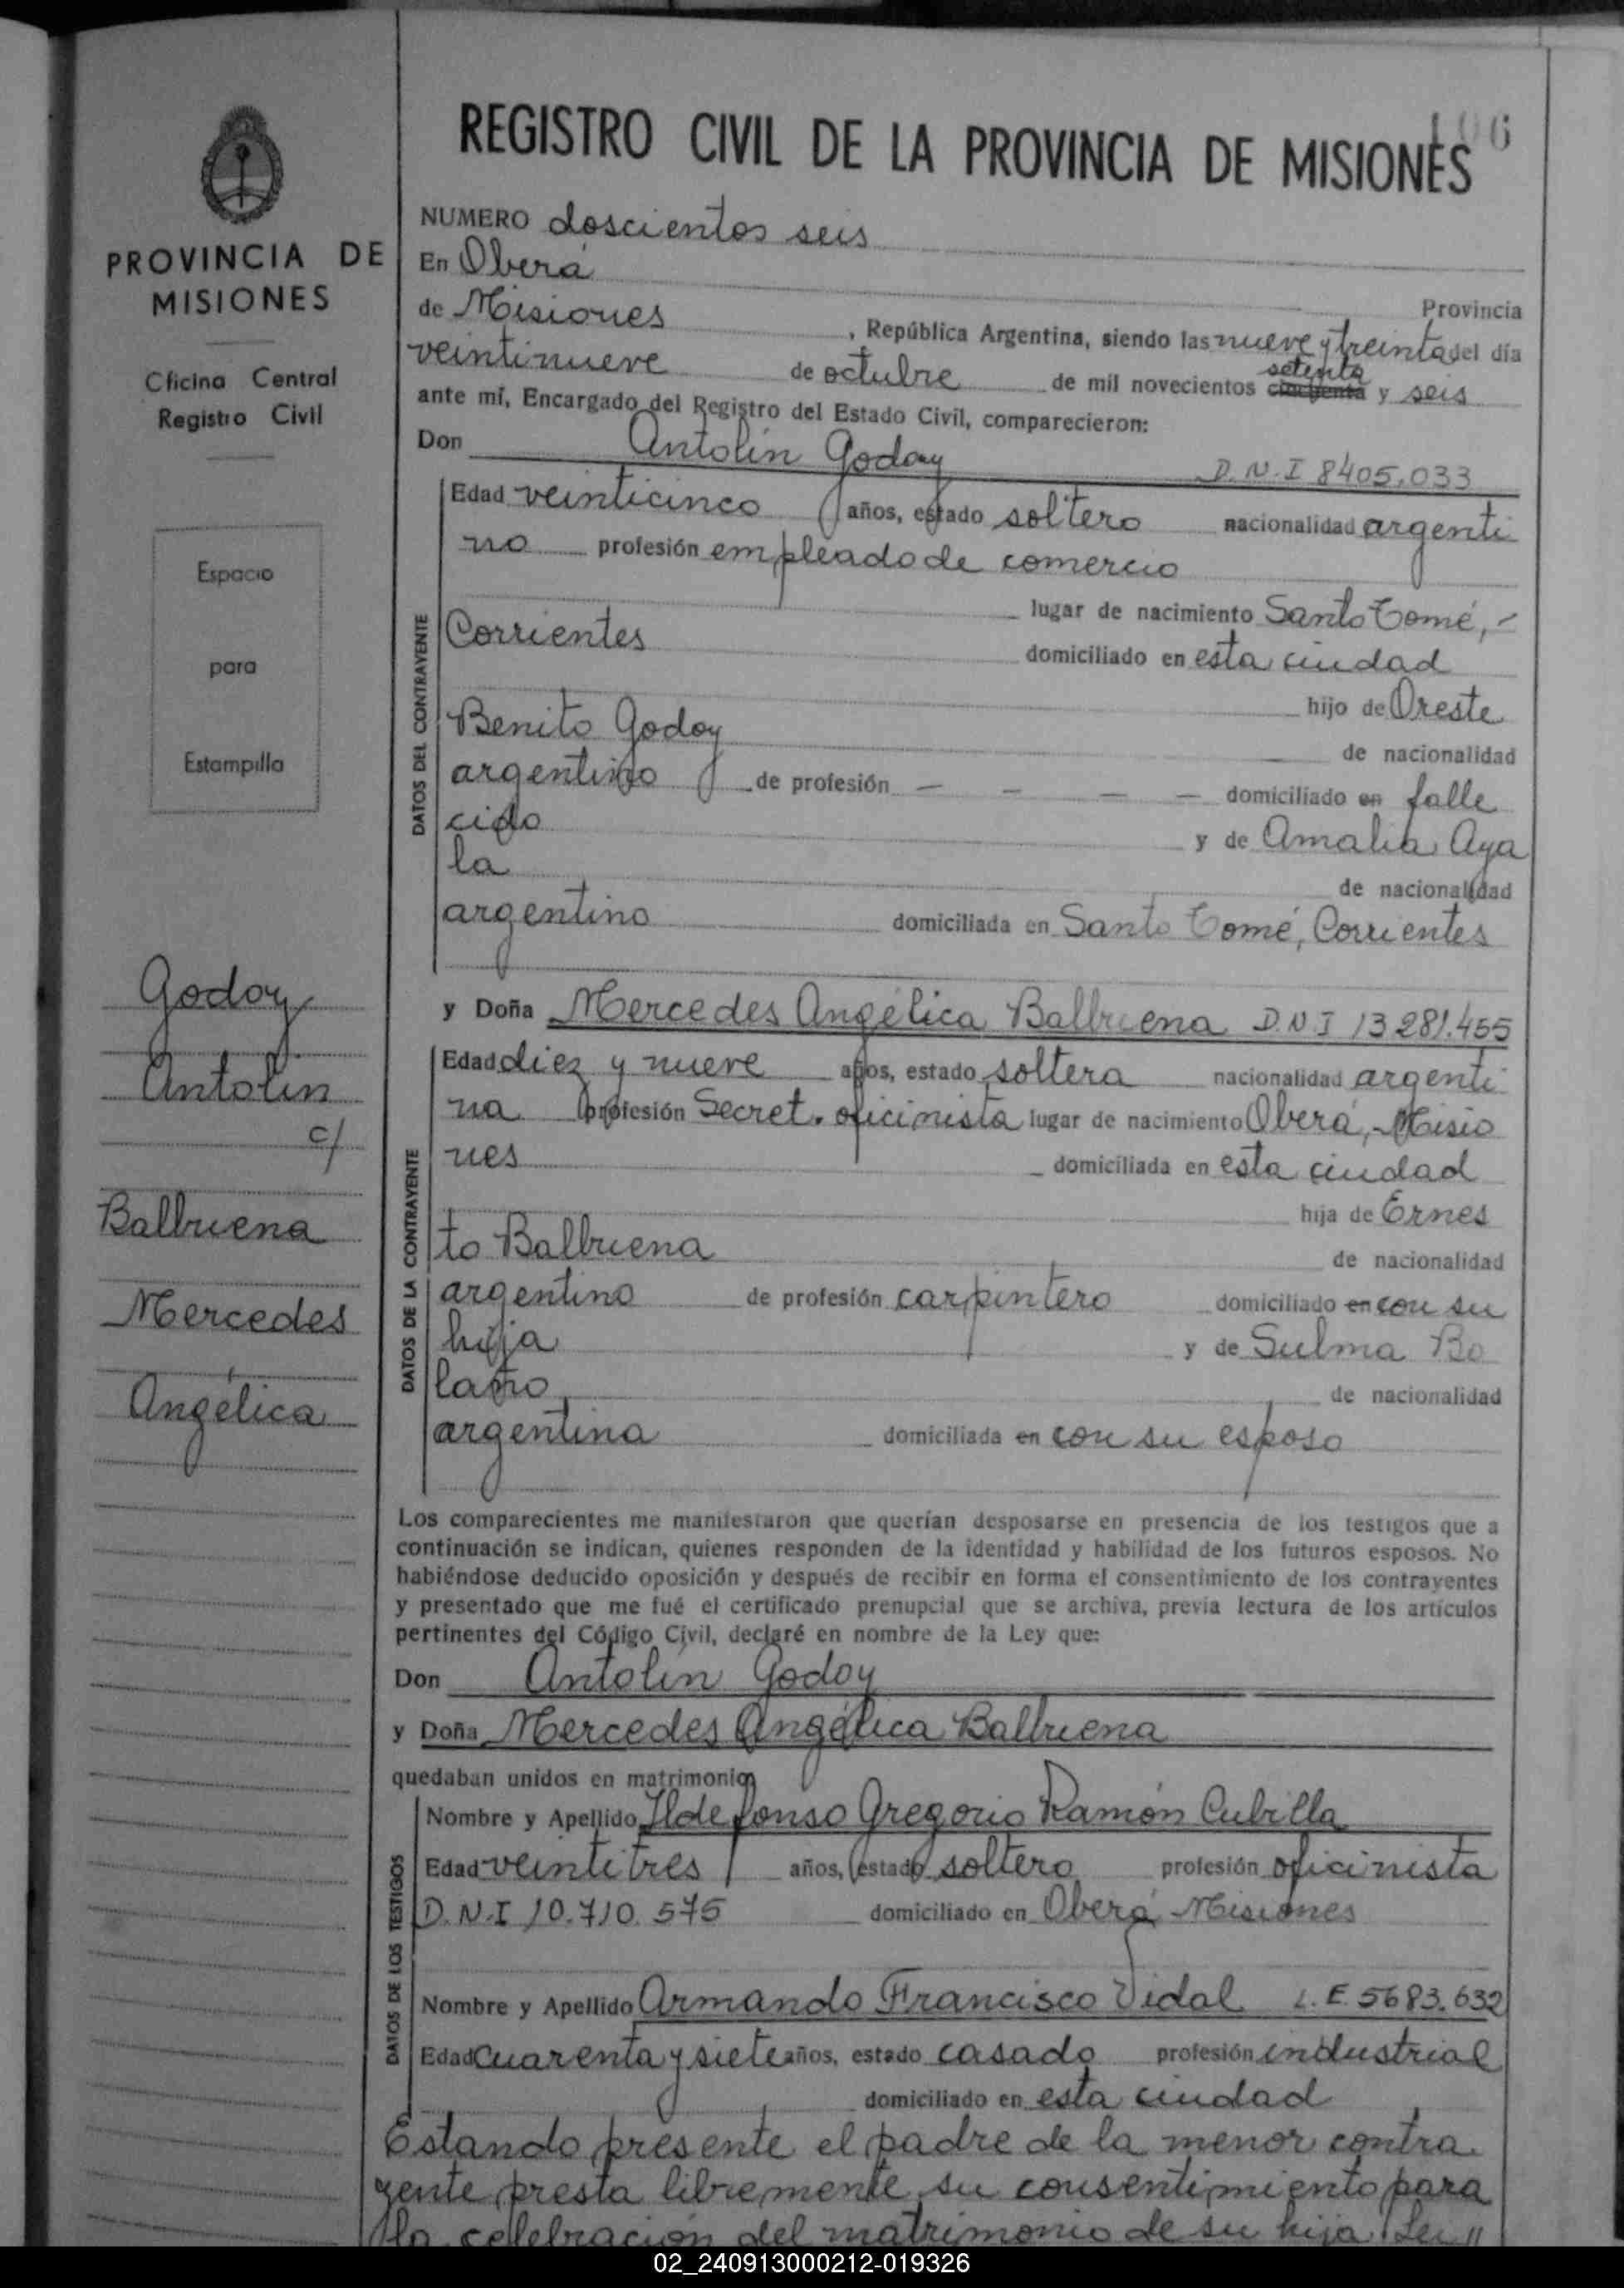 106
REGISTRO CIVIL DE LA PROVINCIA DE MISIONES
PROVINCIA DE
MISIONES
Oficina Central
Registro Civil
Espacio
para
Estampilla
Godoy
Antolin
c/
Balbuena
Mercedes
Angélica
NUMERO doscientos seis
En Oberá Provincia
de Misiones, República Argentina, siendo las nueve y treinta del día
veintinueve de octubre de mil novecientos cincuenta setenta y seis
ante mí, Encargado del Registro del Estado Civil, comparecieron:
Don Antolín Godoy D.N.I 8405.033
DATOS DEL CONTRAYENTE
Edad veinticinco años, estado soltero nacionalidad argenti
no profesión empleado de comercio
lugar de nacimiento Santo Tomé, -
Corrientes domiciliado en esta ciudad
hijo de Oreste
Benito Godoy de nacionalidad
argentino de profesión — — — — domiciliado en falle
cido y de Amalia Aya
la de nacionalidad
argentino domiciliada en Santo Tomé, Corrientes
y Doña Mercedes Angélica Balbuena D.N.I 13281.455
DATOS DE LA CONTRAYENTE
Edad diez y nueve años, estado soltera nacionalidad argenti
na profesión Secret. oficinista lugar de nacimiento Oberá, Misio
nes domiciliada en esta ciudad
hija de Ernes
to Balbuena de nacionalidad
argentino de profesión carpintero domiciliado en con su
hija y de Sulma Bo
laño de nacionalidad
argentina domiciliada en con su esposo
Los comparecientes me manifestaron que querían desposarse en presencia de los testigos que a
continuación se indican, quienes responden de la identidad y habilidad de los futuros esposos. No
habiéndose deducido oposición y después de recibir en forma el consentimiento de los contrayentes
y presentado que me fué el certificado prenupcial que se archiva, previa lectura de los artículos
pertinentes del Código Civil, declaré en nombre de la Ley que:
Don Antolín Godoy
y Doña Mercedes Angélica Balbuena
quedaban unidos en matrimonio
DATOS DE LOS TESTIGOS
Nombre y Apellido Ildefonso Gregorio Ramón Cubilla
Edad veintitres años, estado soltero profesión oficinista
D.N.I 10.710.575 domiciliado en Oberá Misiones
Nombre y Apellido Armando Francisco Vidal L.E. 5683.632
Edad cuarenta y siete años, estado casado profesión industrial
domiciliado en esta ciudad
Estando presente el padre de la menor contra
yente presta libremente su consentimiento para
la celebración del matrimonio de su hija.
02_240913000212-019326